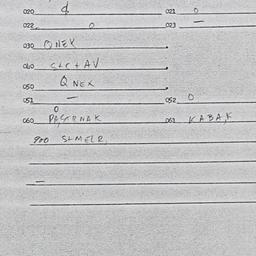 020 d 021 0
022 0 023 —
030 QNEX
040 SLCTAV
050 QNEX
051 — 052 0
060 PASTRNAK 061 KABAK
900 SLMELR